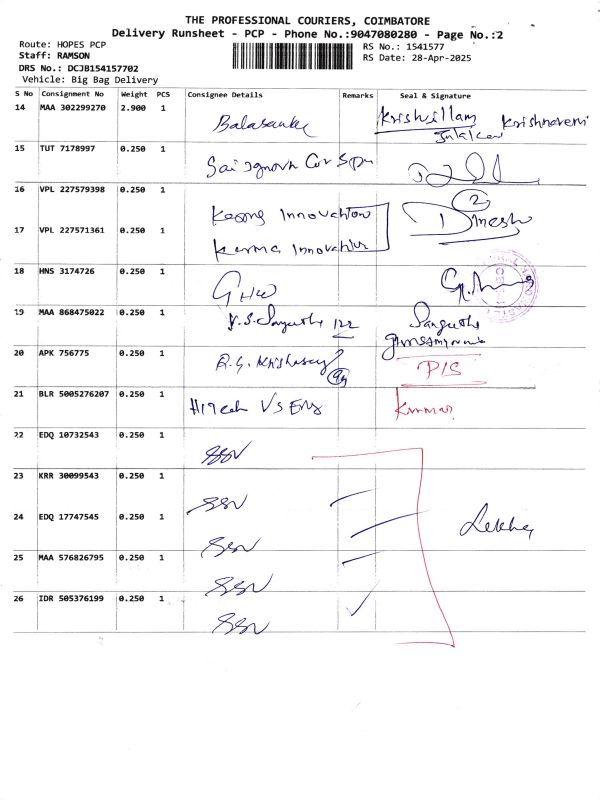 THE PROFESSIONAL COURIERS, COIMBATORE
Delivery Runsheet - PCP - Phone No.:9047080280 - Page No.:2
Route: HOPES PCP
RS No.: 1541577
Staff: RAMSON
RS Date: 28-Apr-2025
DRS No.: DCJB154157702
Vehicle: Big Bag Delivery
S No Consignment No Weight PCS Consignee Details Remarks Seal & Signature
14 MAA 302299270 2.900 1 Krishnaveni
15 TUT 7178997 0.250 1
16 VPL 227579398 0.250 1 Innovation 2
17 VPL 227571361 0.250 1 Karma Innovation Dinesh
18 HNS 3174726 0.250 1 GHW
19 MAA 868475022 0.250 1 V.S. Sangeetha 122 Sangeetha
20 APK 756775 0.250 1 P/S
21 BLR 5005276207 0.250 1 Hitech VS Eng Kumar
22 EDQ 10732543 0.250 1 SSN
23 KRR 30099543 0.250 1 SSN
24 EDQ 17747545 0.250 1 SSN Lekha
25 MAA 576826795 0.250 1 SSN
26 IDR 505376199 0.250 1 SSN